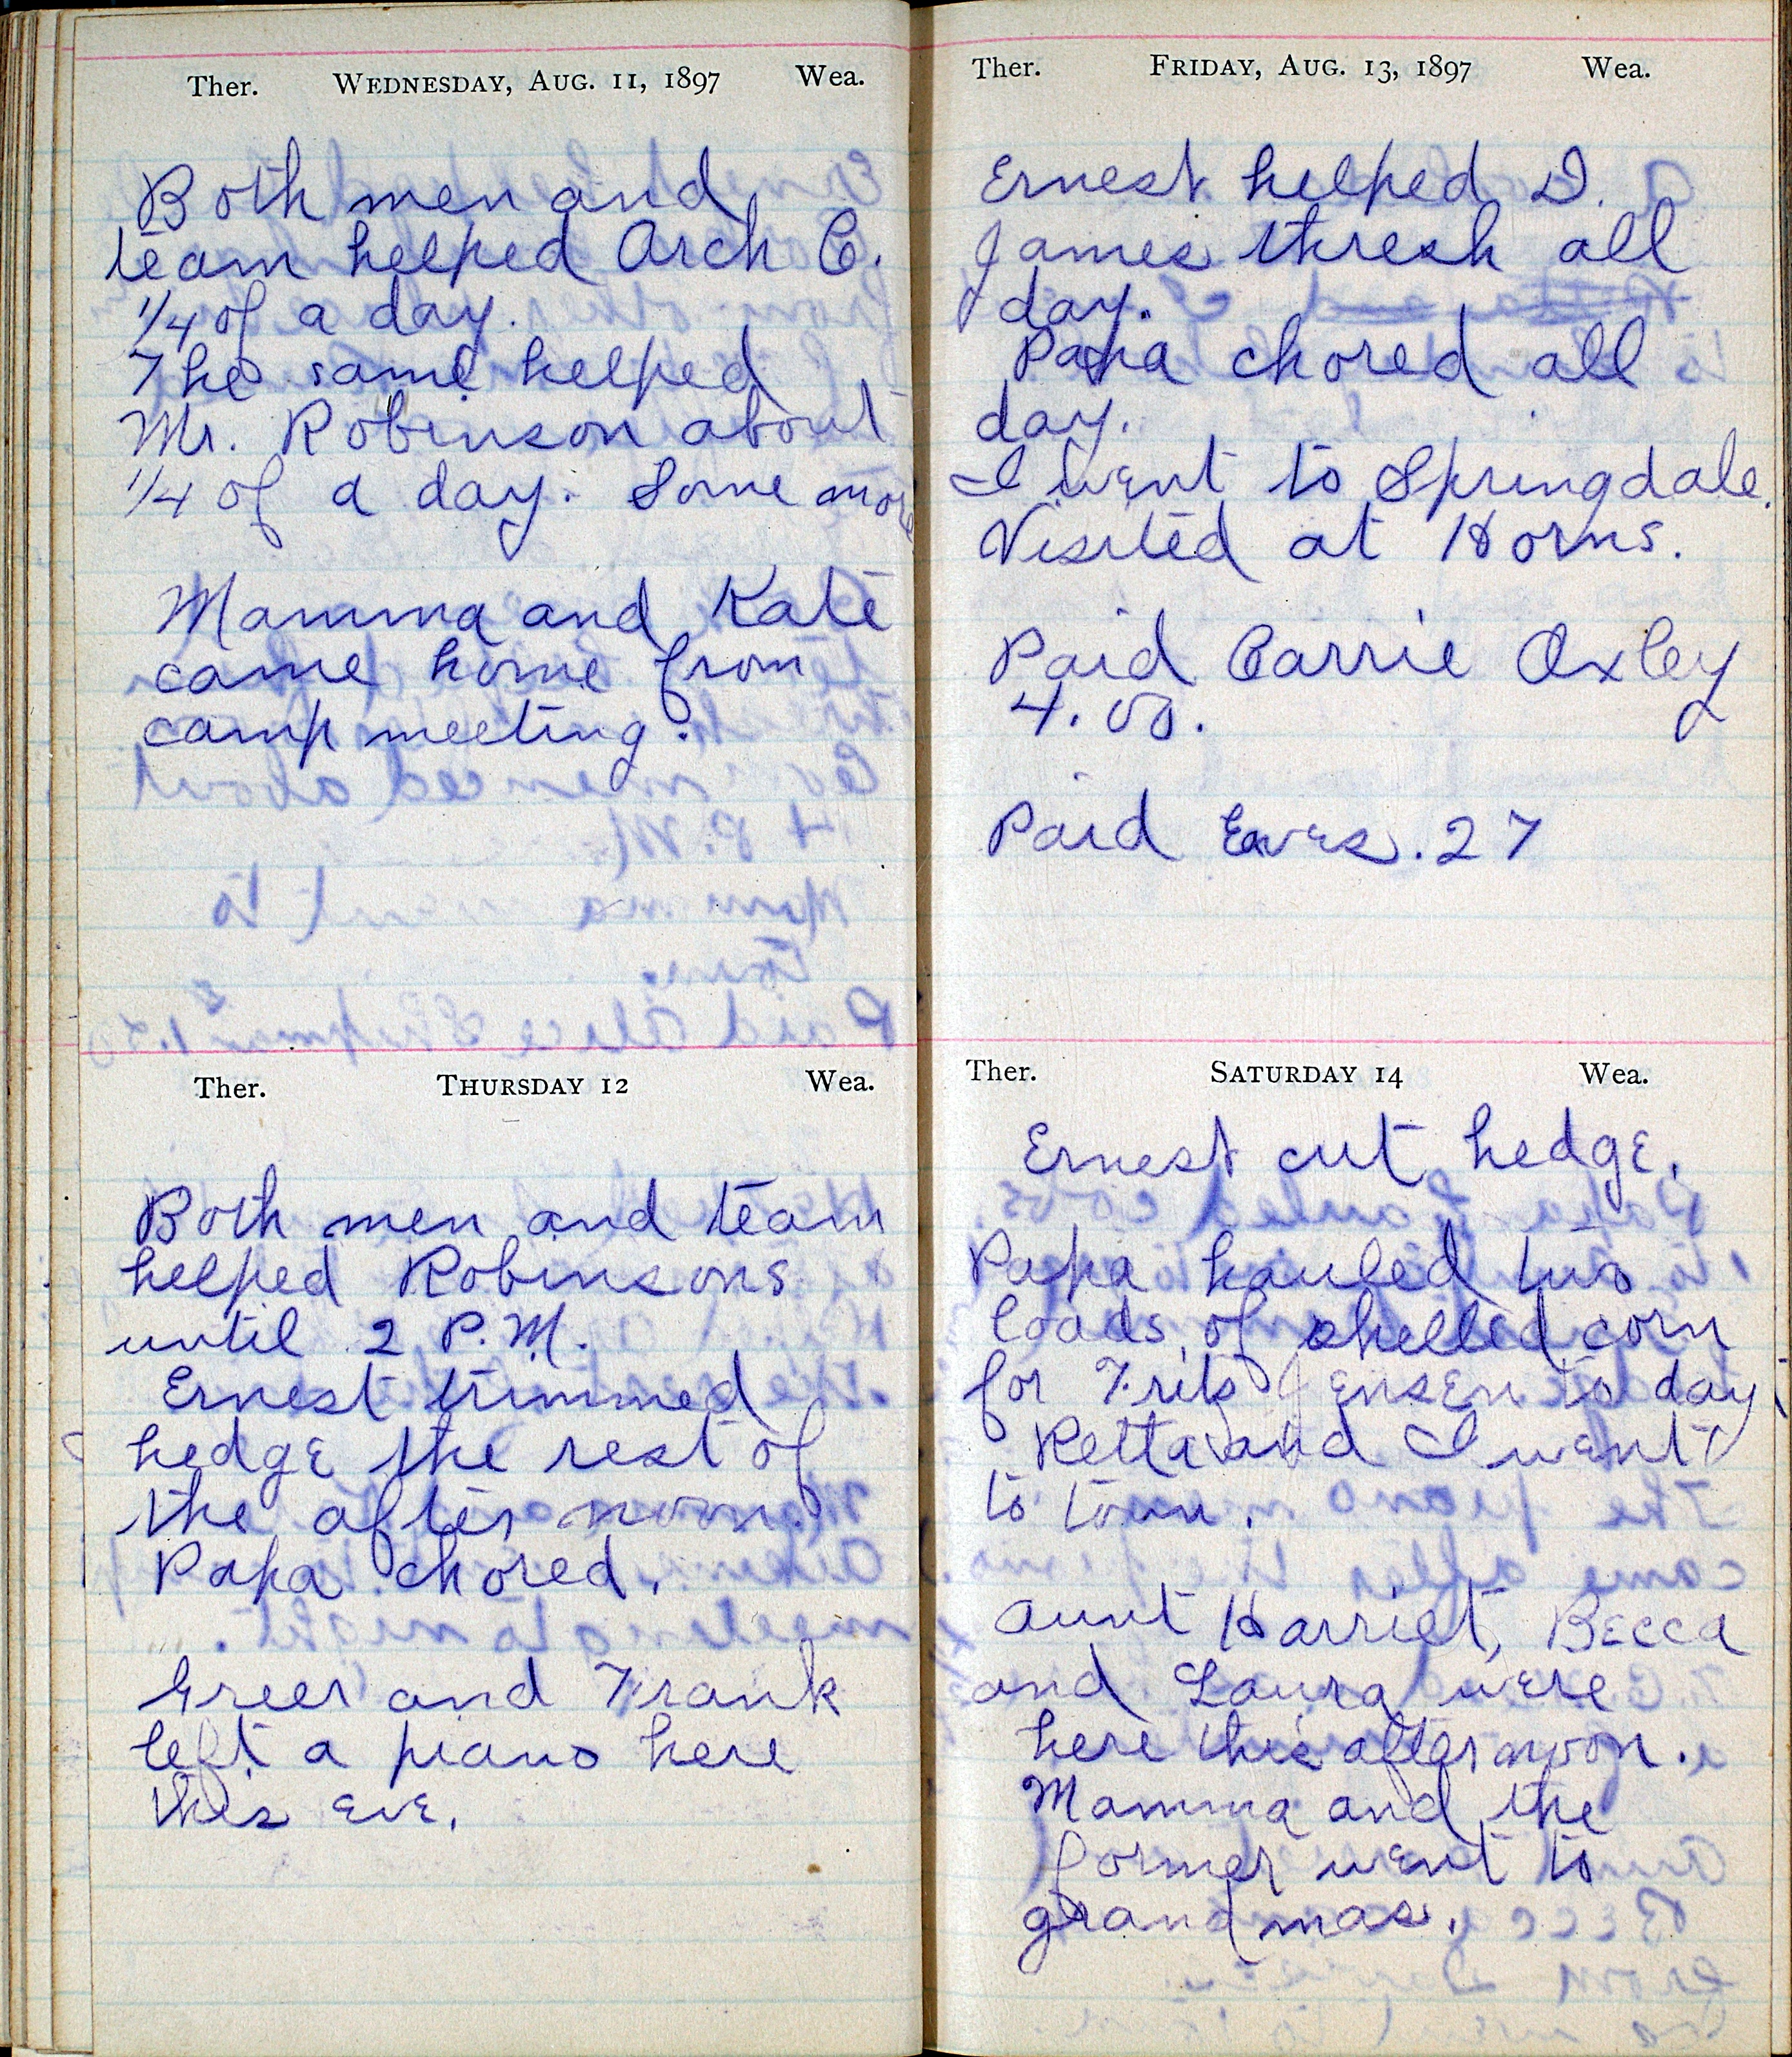 Ther. WEDNESDAY, AUG. 11, 1897 Wea.
Both men and
team helped Arch C.
1/4 of a day.
The same helped
Mr. Robinson about
1/4 of a day. Some more
Mamma and Kate
came home from
camp meeting.
Ther. THURSDAY 12 Wea.
Both men and team
helped Robinsons
until 2 P.M.
Ernest trimmed
hedge the rest of
the after noon.
Papa chored.
Greer and Frank
left a piano here
this eve.
Ther. FRIDAY, AUG. 13, 1897 Wea.
Ernest helped D.
James thresh all
day.
Papa chored all
day.
I went to Springdale.
Visited at Horns.
Paid Carrie Oxley
4.00.
Paid .27
Ther. SATURDAY 14 Wea.
Ernest cut hedge.
Papa hauled two
loads of shelled corn
for Frits Jensen to day
Retta and I went
to town.
Aunt Harriet, Becca
and Laura were
here this after noon.
Mamma and the
former went to
grandmas.